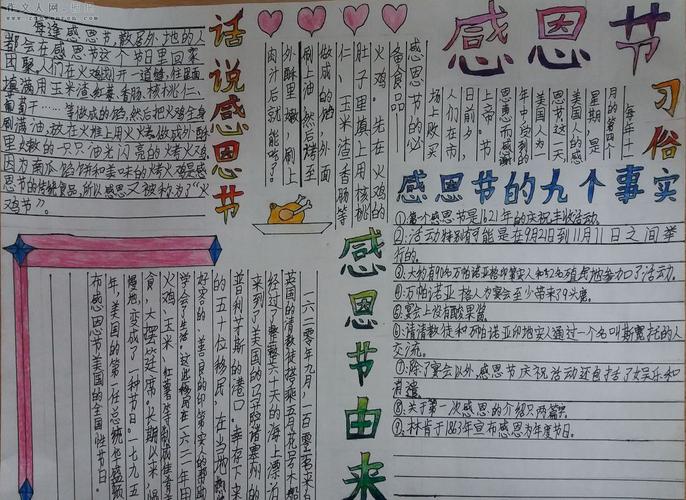 作文人网
感恩节
话说感恩节
每逢感恩节,散居外地的人
都会在感恩节这个节日里回家
团聚,人们在火鸡
填满用玉米渣、香肠、核桃仁、
葡萄干……等做成的馅,然后把火鸡全身
刷满油,放在火堆上用火烤,做成外酥
里嫩的一只只油光闪亮的烤火鸡
因为南瓜馅饼和美味的烤火鸡是感
恩节的传统食品,所以感恩又被称为了“火
鸡节”。
感恩节的必
备食品
火鸡。先在火鸡的
肚子里填上用核桃
仁、玉米渣、香肠等
做成的馅,外面
刷上油,然后烤至
外酥里嫩,刷上
肉汁后就能吃了。
习俗
每年十一
月的第四个
星期,是
美国人的感
恩节,这一天
美国人为一
年中受到的
恩惠而感谢
上帝。节
日前夕,
人们在市
场上购买
感恩节的九个事实
①第一个感恩节是1621年的庆祝丰收活动。
②活动特别有可能是在9月21日到11月11日之间举
行的。
③大约有90名万帕诺亚格印第安人和52名殖民地参加了活动。
④万帕诺亚格人为宴会至少带来了9头鹿。
⑤宴会上没有酸果酱。
⑥清清教徒和万帕诺亚印地安人通过一个名叫斯宽托的人
交流。
⑦除了宴会以外,感恩节庆祝活动还包括了娱乐和
消遣
⑧关于第一次感恩的介绍只两篇
⑨林肯于1863年宣布感恩为年度节日。
感恩节由来
一六二零年九月,一百零二名来自
英国的清教徒搭乘五月花号木船
经过了整整六十六天的海上漂泊
来到了美国的马萨诸塞州的
普利茅斯的港口。幸存下来
的五十位移民,在当地热情
好客的、善良的印第安人的帮助
学会了生活。这些移民在一六二一年用
火鸡、玉米、红薯等制成佳肴美
食,大摆筵席。久期以来,慢
慢地,变成了一种节日。一七九五
年,美国的第一任总统华盛顿
布感恩节,美国的全国性节日。